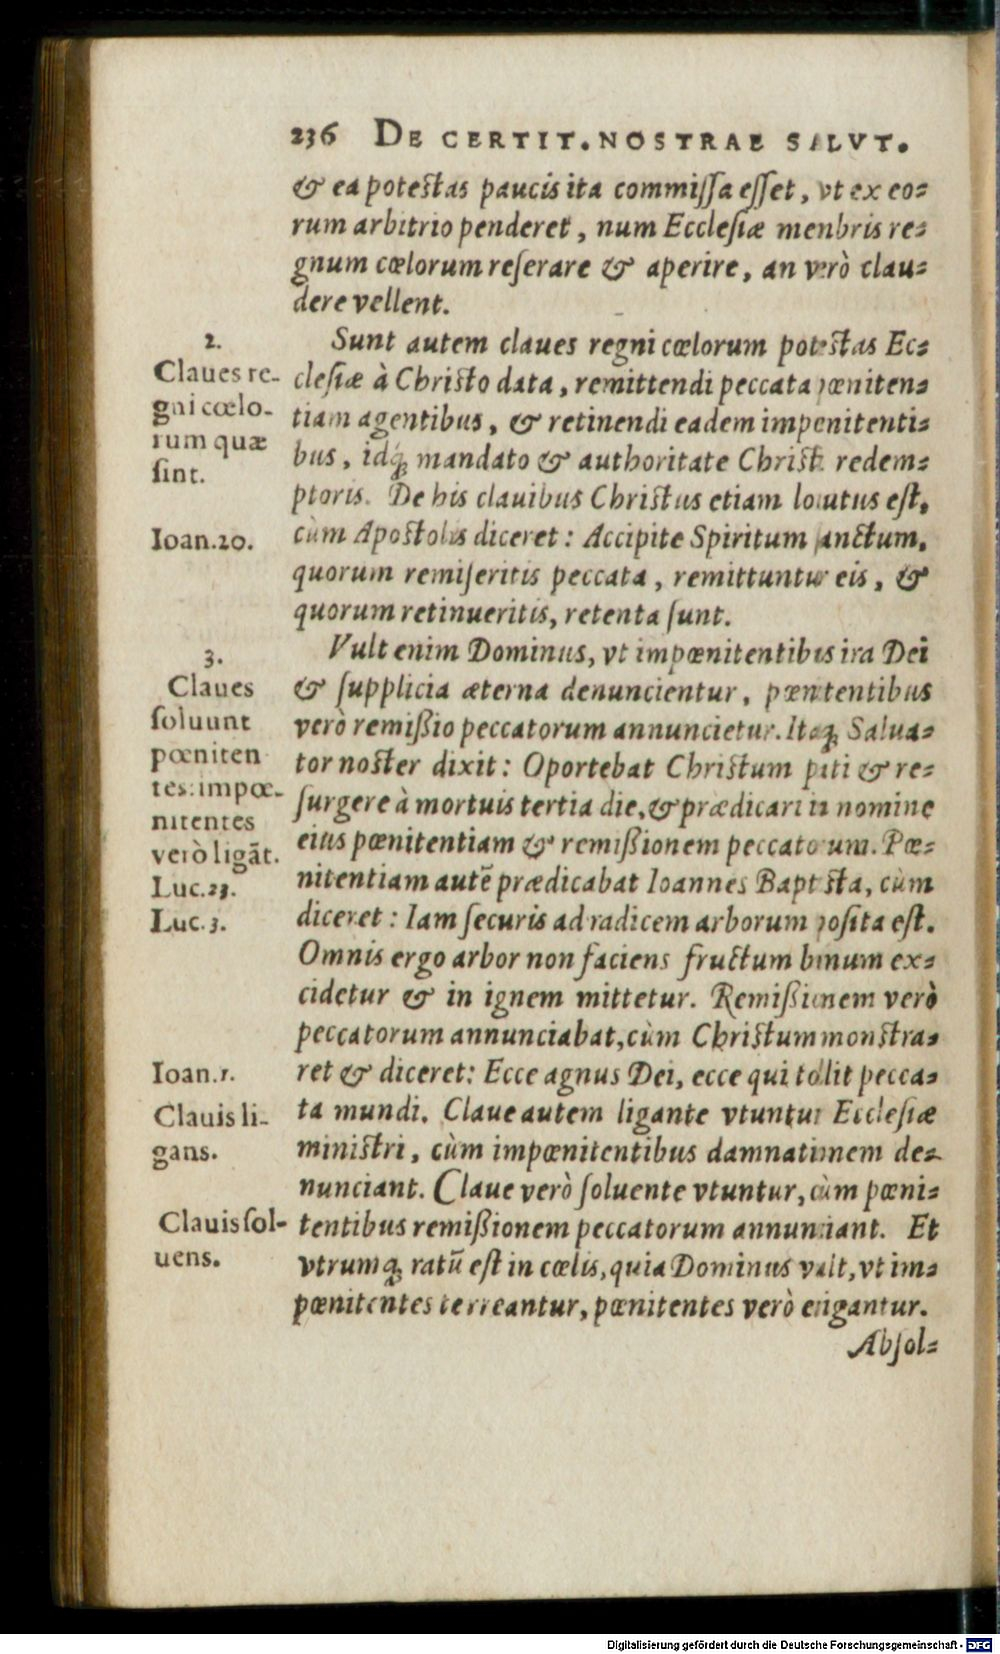 236 DE CERTIT. NOSTRAE SALVT.
& ea potestas paucis ita commiſſa eſſet, vt ex eo-
rum arbitrio penderet, num Eccleſiæ menbris re-
gnum cœlorum reſerare & aperire, an verò clau-
dere vellent.
2.
Claues re-
gni cœlo-
rum quæ
ſint.
Sunt autem claues regni cœlorum potestas Ec-
cleſiæ à Christo data, remittendi peccata pœniten-
tiam agentibus, & retinendi eadem impenitenti-
bus, idq́; mandato & authoritate Christi redem-
ptoris. De his clauibus Christus etiam locutus eſt,
Ioan.20.
cùm Apostolis diceret: Accipite Spiritum ſanctum,
quorum remiſeritis peccata, remittuntur eis, &
quorum retinueritis, retenta ſunt.
3.
Claues
ſoluunt
pœniten
tes: impœ-
nitentes
verò ligãt.
Luc.23.
Luc.3.
Vult enim Dominus, vt impœnitentibus ira Dei
& ſupplicia æterna denuncientur, pœnitentibus
verò remißio peccatorum annuncietur. Itaq; Salua-
tor noster dixit: Oportebat Christum pati & re-
ſurgere à mortuis tertia die, & prædicari in nomine
eius pœnitentiam & remißionem peccatorum. Pœ-
nitentiam autẽ prædicabat Ioannes Baptista, cùm
diceret: Iam ſecuris ad radicem arborum poſita eſt.
Omnis ergo arbor non faciens fructum bonum ex-
cidetur & in ignem mittetur. Remißionem verò
peccatorum annunciabat, cùm Christum monstra-
Ioan.1.
ret & diceret: Ecce agnus Dei, ecce qui tollit pecca-
Clauis li-
gans.
ta mundi. Claue autem ligante vtuntur Eccleſiæ
ministri, cùm impœnitentibus damnationem de-
nunciant. Claue verò ſoluente vtuntur, cùm pœni-
Clauis ſol-
uens.
tentibus remißionem peccatorum annunciant. Et
vtrumq; ratũ eſt in cœlis, quia Dominus vult, vt im-
pœnitentes terreantur, pœnitentes verò erigantur.
Abſol-
Digitalisierung gefördert durch die Deutsche Forschungsgemeinschaft - DFG